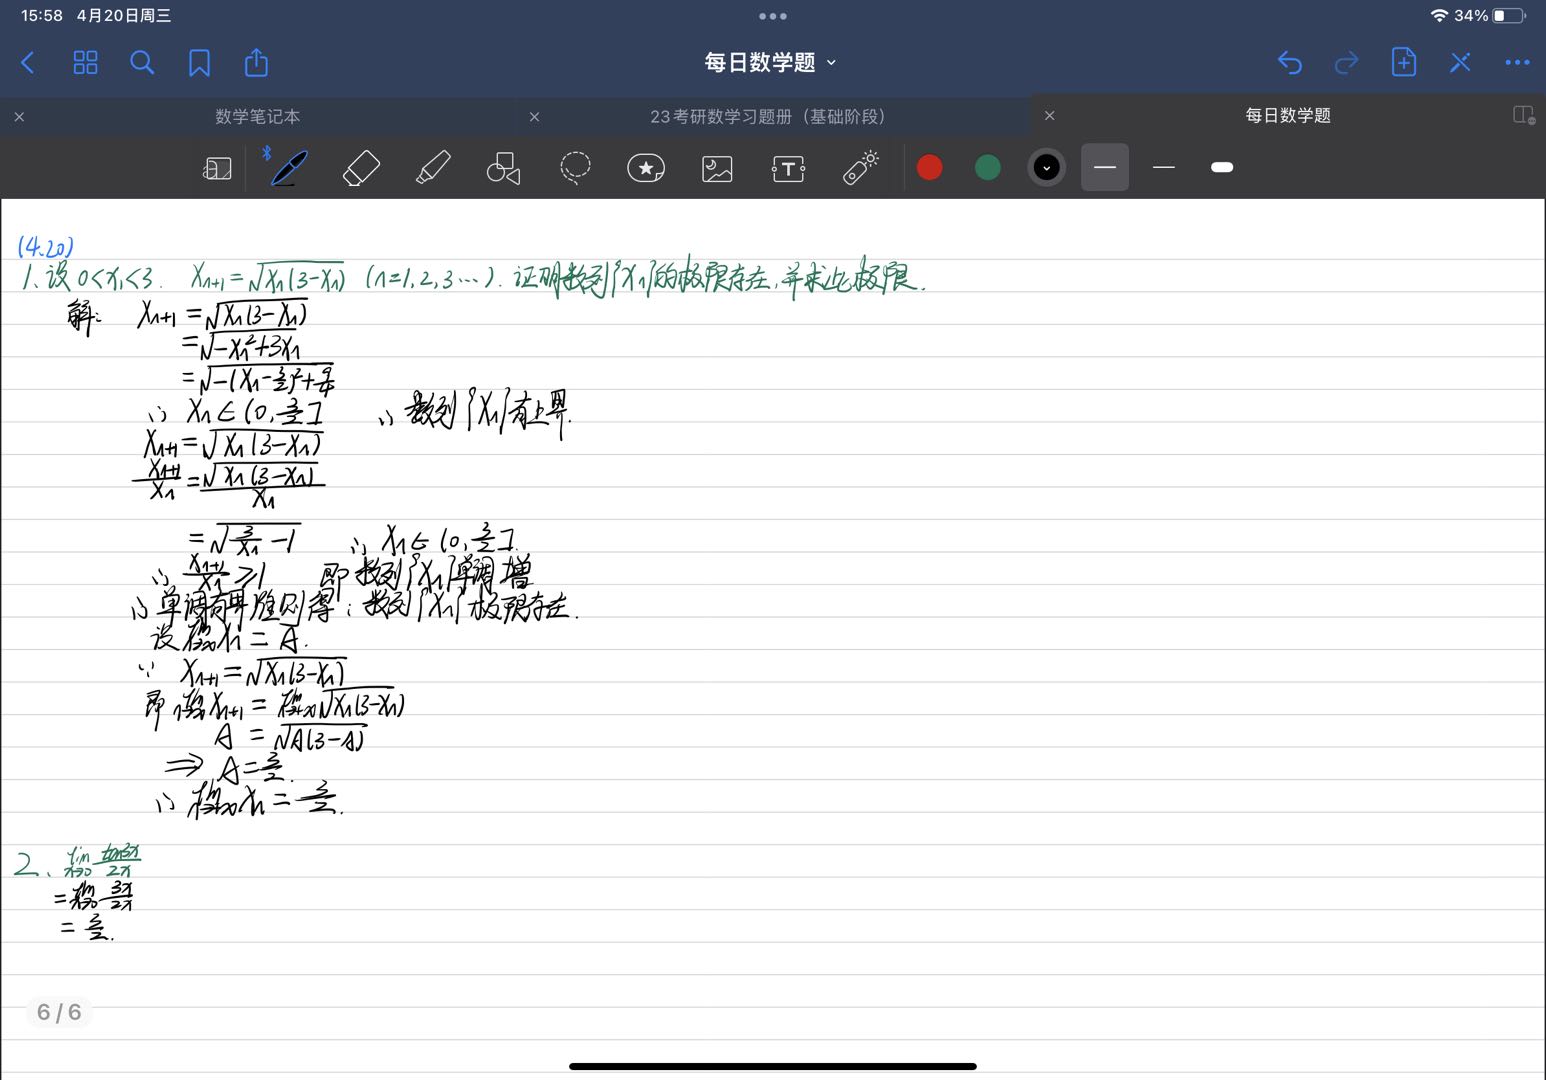 15:58 4月20日周三
34%
每日数学题
数学笔记本
23考研数学习题册（基础阶段）
每日数学题
(4.20)
1、设 0<x₁<3. Xₙ₊₁=√(Xₙ(3-Xₙ)) (n=1,2,3…). 证明数列{Xₙ}的极限存在,并求此极限.
解: Xₙ₊₁=√(Xₙ(3-Xₙ))
=√(-Xₙ²+3Xₙ)
=√(-(Xₙ-3/2)²+9/4)
∴ Xₙ∈(0,3/2] ∴ 数列{Xₙ}有上界.
Xₙ₊₁=√(Xₙ(3-Xₙ))
Xₙ₊₁/Xₙ=√(Xₙ(3-Xₙ))/Xₙ
=√(3/Xₙ-1) ∴ Xₙ∈(0,3/2]
∴ Xₙ₊₁/Xₙ≥1 即 数列{Xₙ}单调增
∴ 单调有界准则得:数列{Xₙ}极限存在.
设 lim(n→∞) Xₙ=A.
∵ Xₙ₊₁=√(Xₙ(3-Xₙ))
即 lim(n→∞) Xₙ₊₁=lim(n→∞) √(Xₙ(3-Xₙ))
A=√(A(3-A))
⇒ A=3/2.
∴ lim(n→∞) Xₙ=3/2.
2、lim(x→0) tan3x/2x
=lim(x→0) 3x/2x
=3/2.
6/6